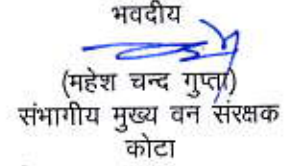 भवदीय
(महेश चन्द गुप्ता)
संभागीय मुख्य वन संरक्षक
कोटा